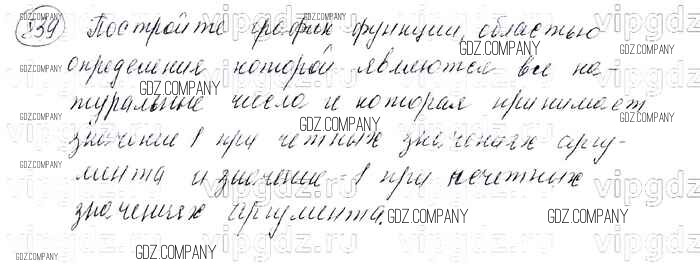 839 Постройте график функции, областью
определения которой являются все на-
туральные числа и которая принимает
значение 1 при четных значениях аргу-
мента и значение -1 при нечетных
значениях аргумента.